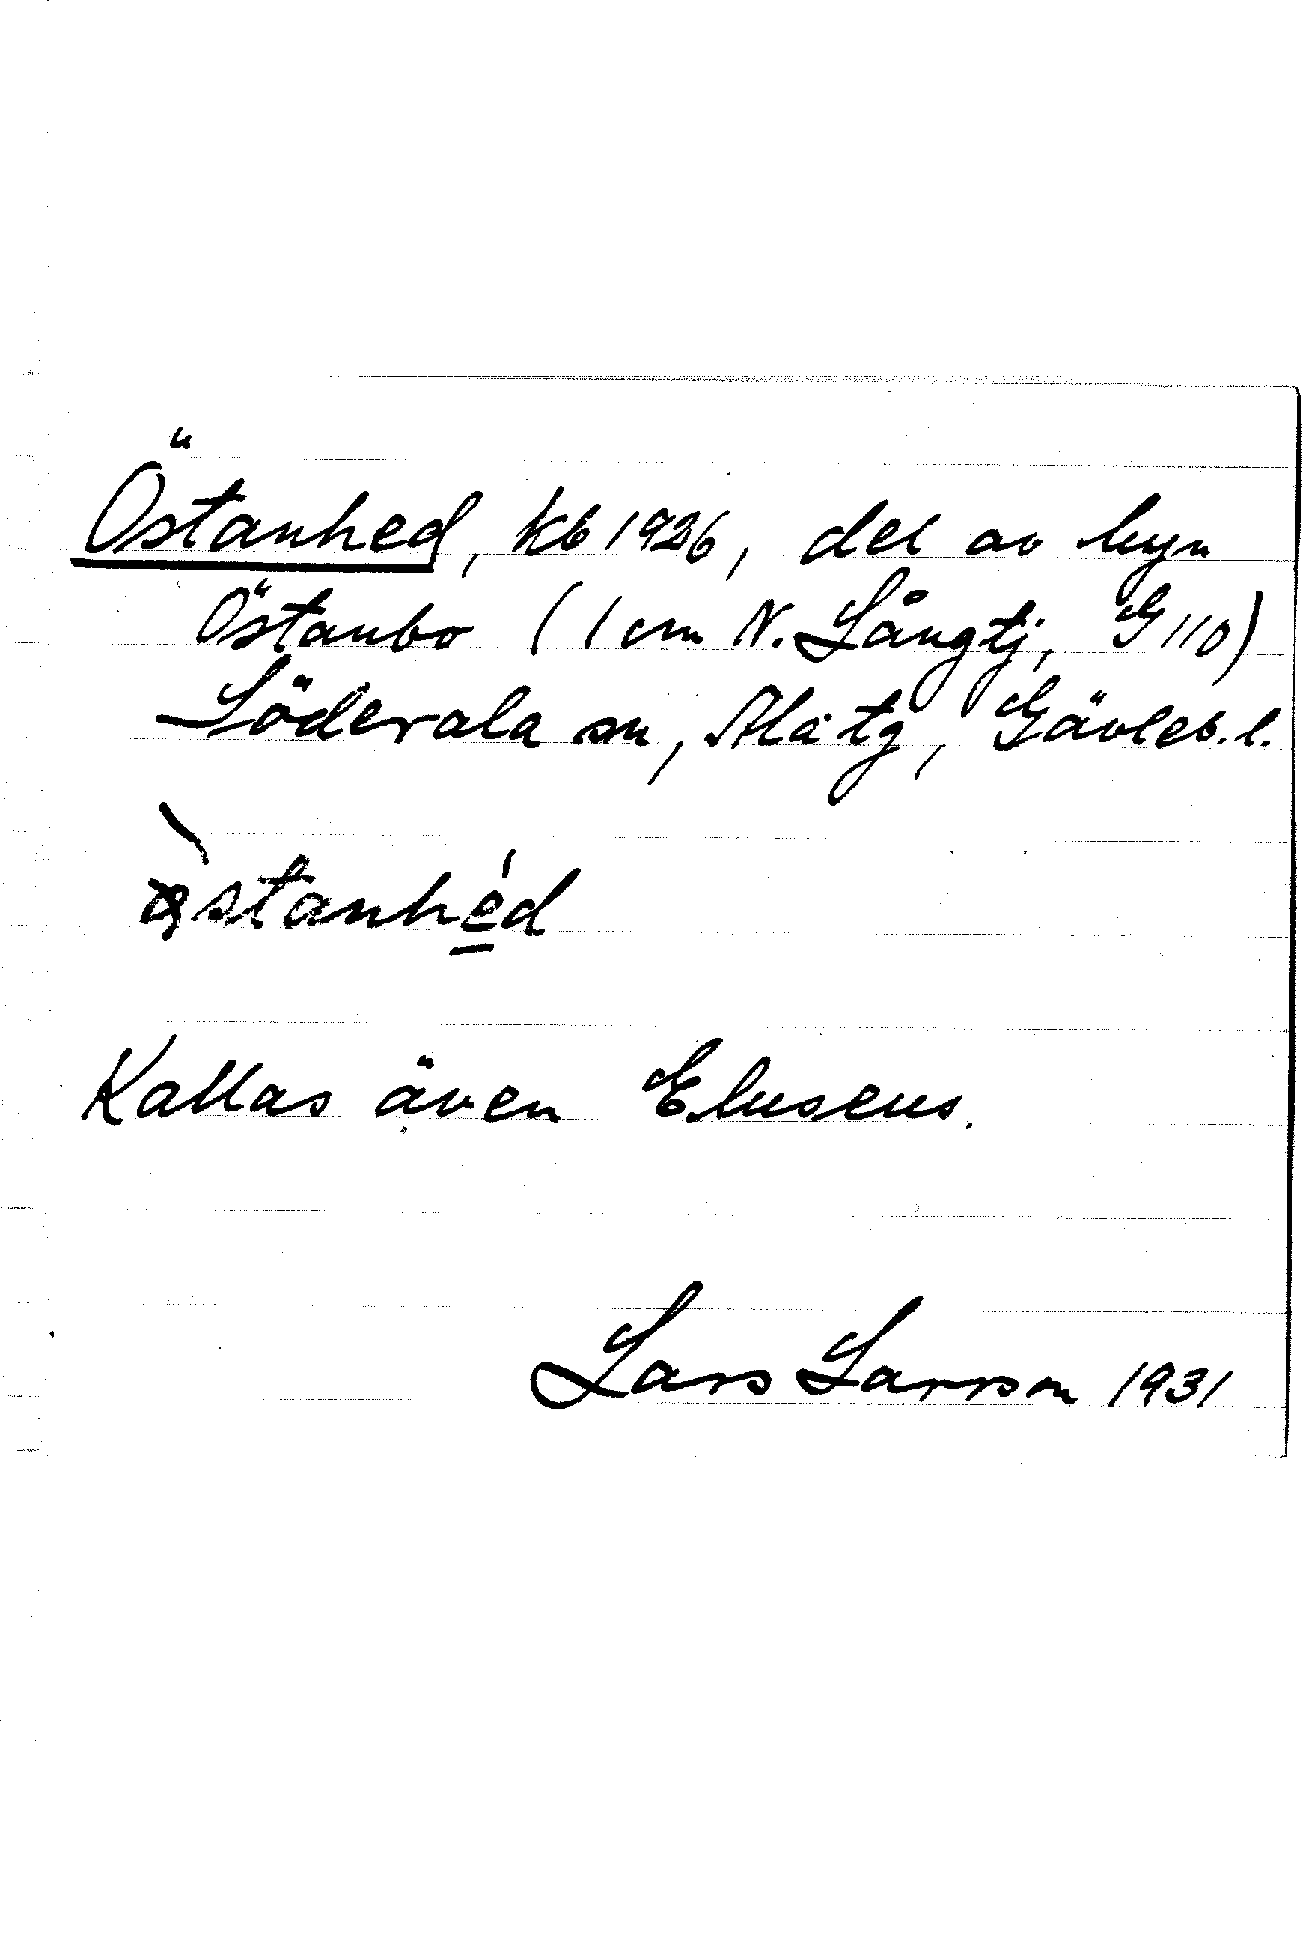 Östanhed, kb 1926, del av byn
Östanbo (1 cm N. Långtj, G 110)
Söderala sn, Ala tg, Gävleb. l.
stanhé̲d
Kallas även Eluseus.
Lars Larsson 1931